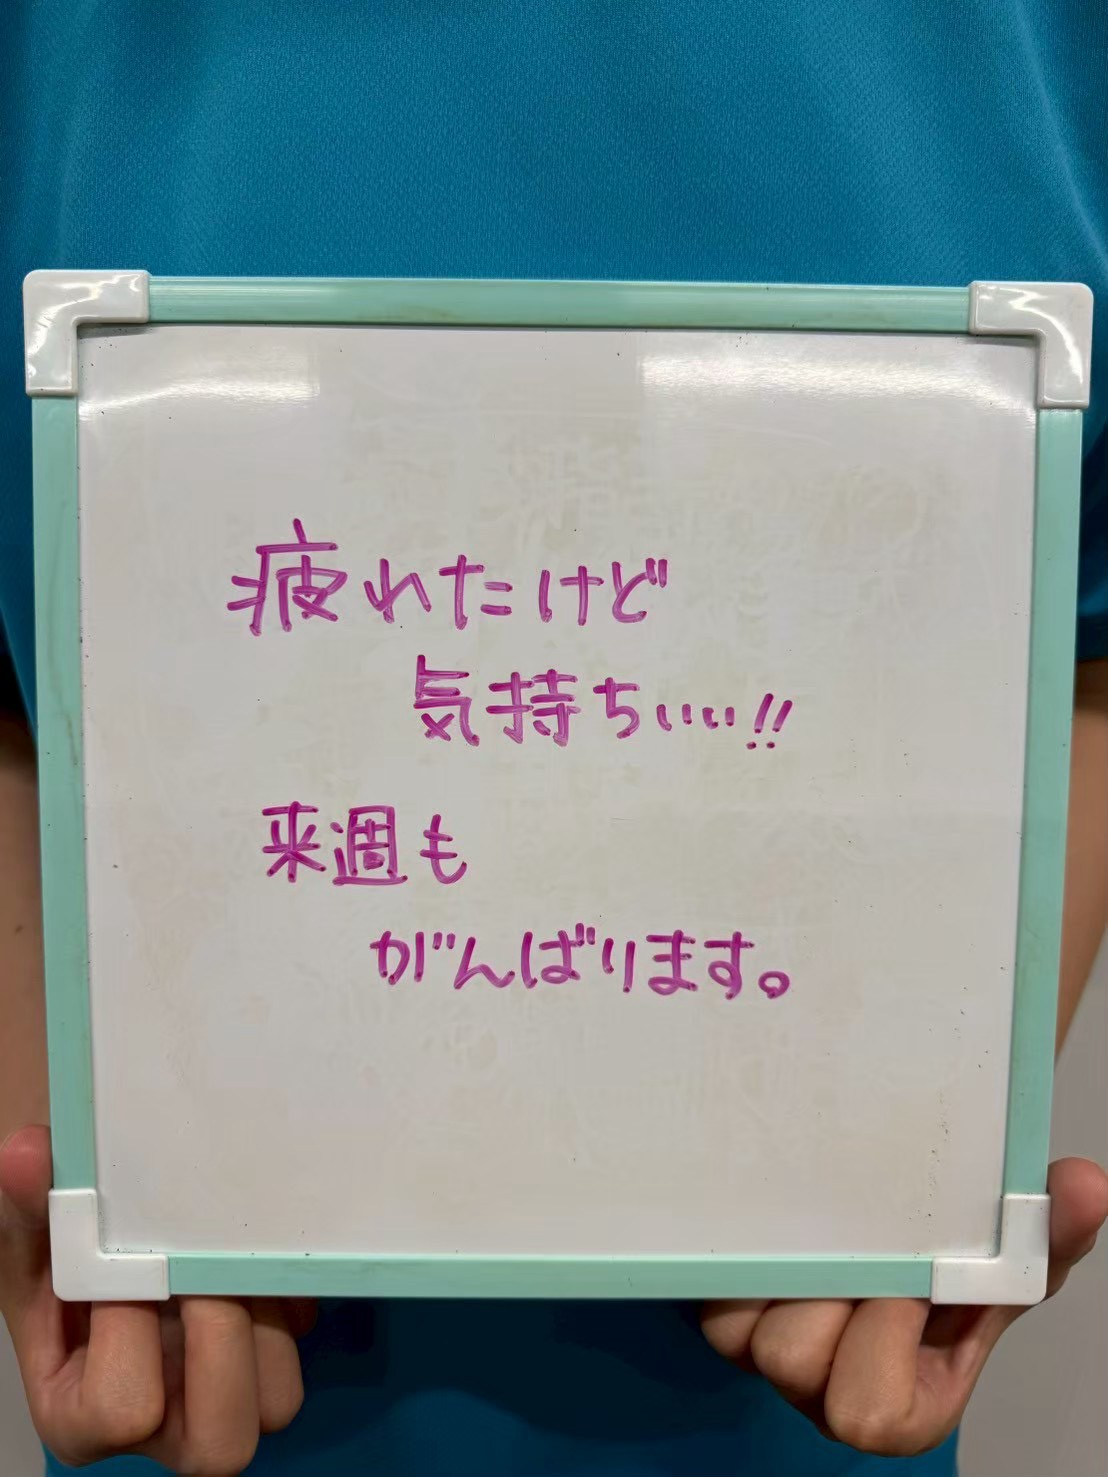 疲れたけど
気持ちいい!!
来週も
がんばります。